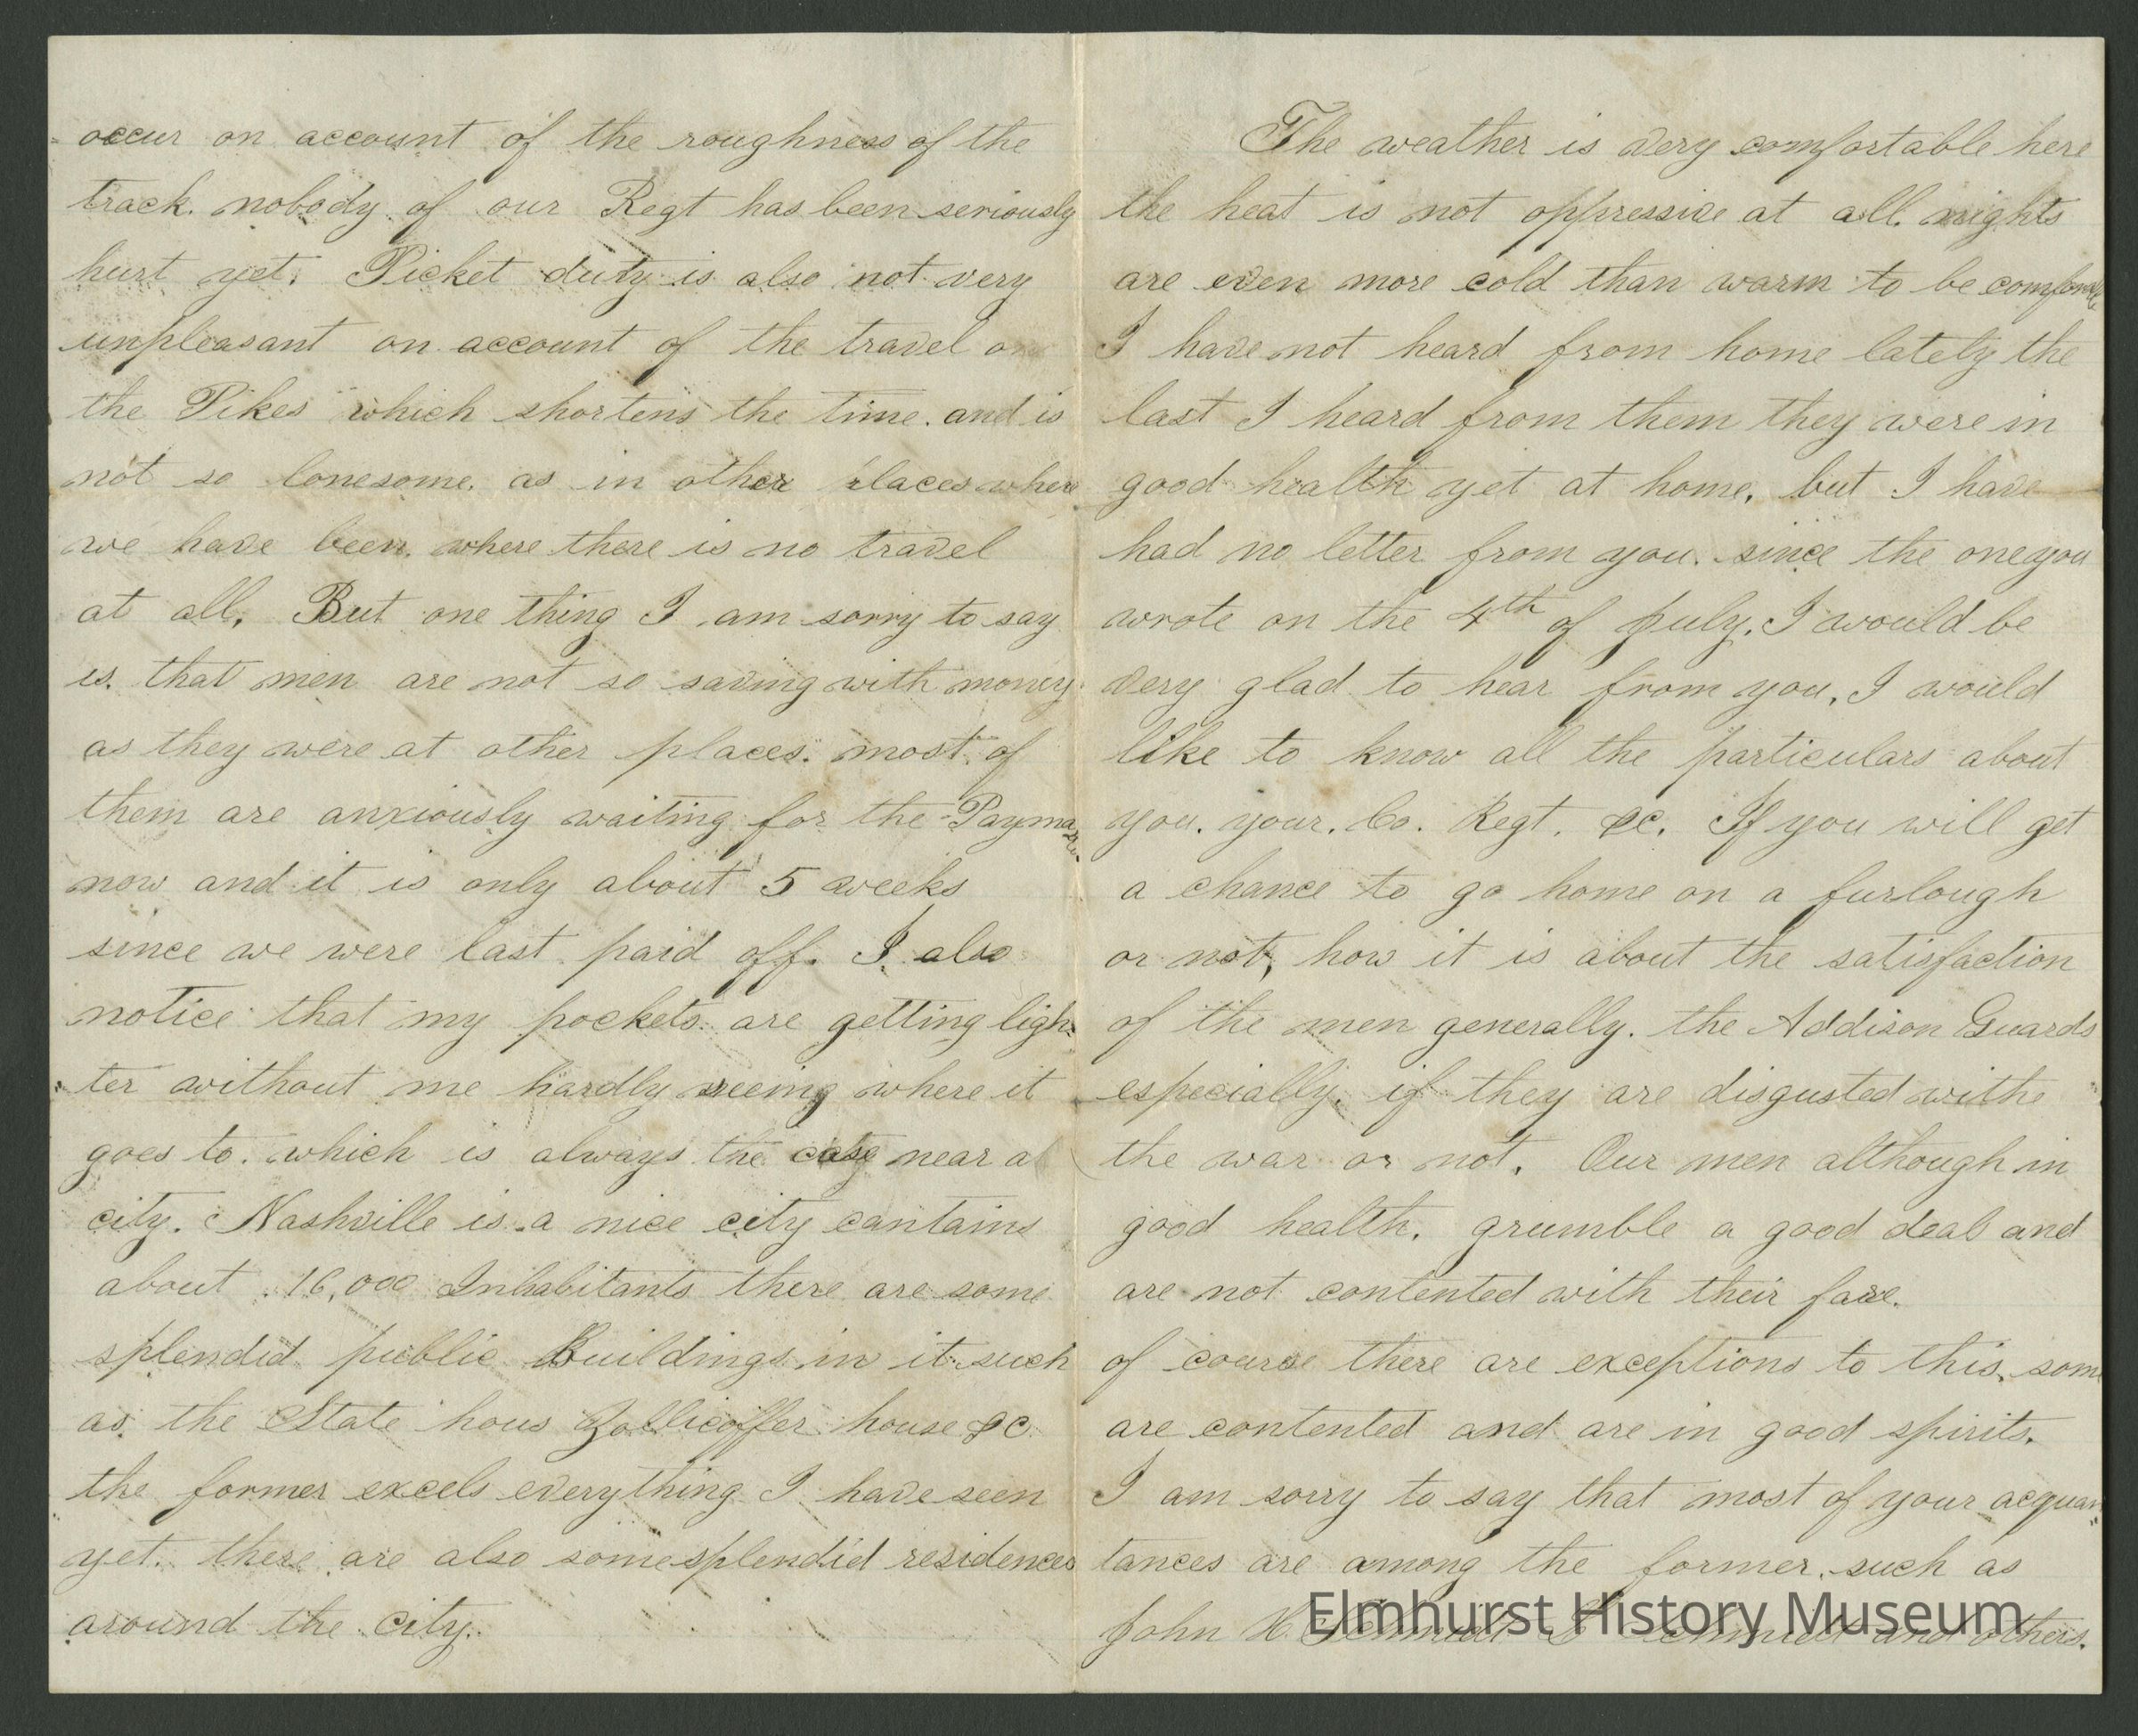 occur on account of the roughness of the
track. nobody of our Regt has been seriously
hurt yet. Picket duty is also not very
unpleasant on account of the travel on
the Pikes which shortens the time. and is
not so lonesome. as in other places where
we have been. where there is no travel
at all. But one thing I am sorry to say
is. that men are not so saving with money
as they were at other places. most of
them are anxiously waiting for the Paymaster
now and it is only about 5 weeks
since we were last paid off. I also
notice that my pockets are getting ligh
ter without me hardly seeing where it
goes to. which is always the case near a
city. Nashville is a nice city contains
about 16,000 Inhabitants there are some
splendid public Buildings in it such
as the State hous Zollicoffer house &c
the former excels everything I have seen
yet. there are also some splendid residences
around the city.
The weather is very comfortable here
the heat is not oppressive at all. nights
are even more cold than warm to be
I have not heard from home lately the
last I heard from them they were in
good health yet at home, but I have
had no letter from you. since the one you
wrote on the 4th of July. I would be
very glad to hear from you, I would
like to know all the particulars about
you. your. Co. Regt. &c. If you will get
a chance to go home on a furlough
or not, how it is about the satisfaction
of the men generally. the Addison Guards
especially. if they are disgusted withe
the war or not. Our men although in
good health. grumble a good deal and
are not contented with their fare.
of course there are exceptions to this. some
are contented and are in good spirits.
I am sorry to say that most of your acquan
tances are among the former. such as
John H. Schmidt and others.
Elmhurst History Museum